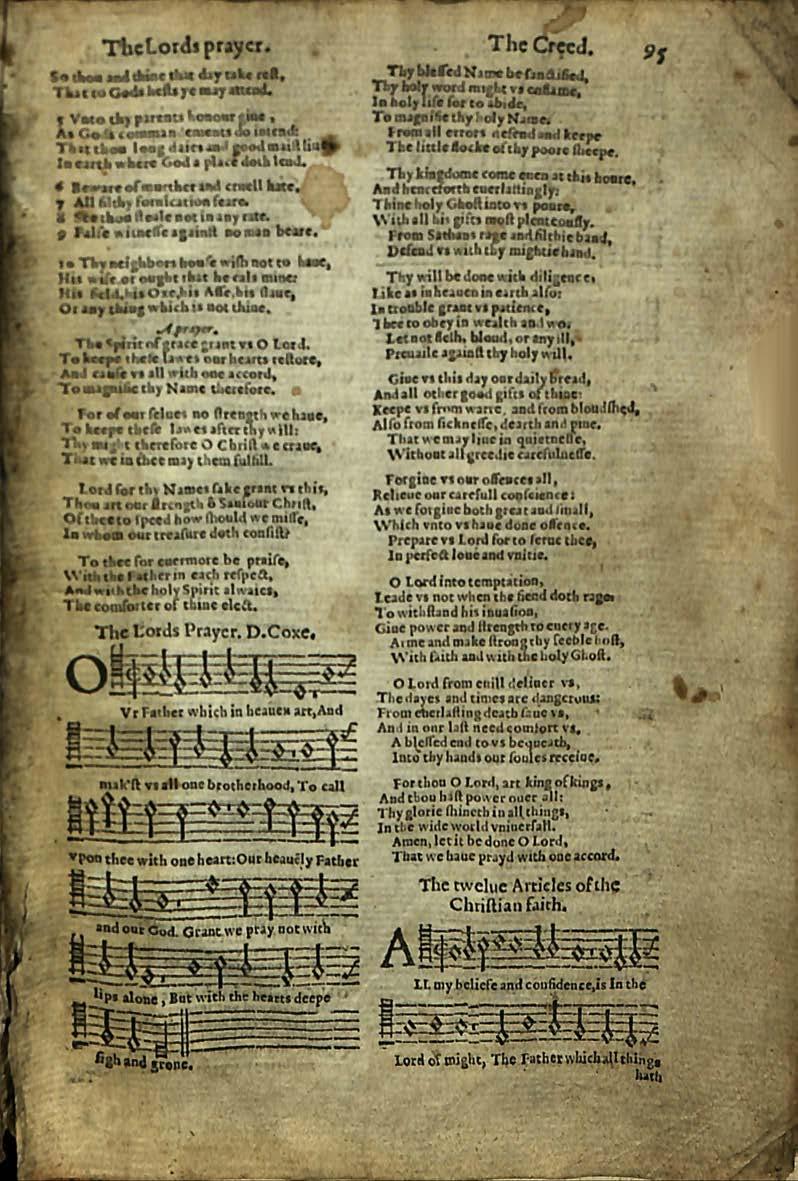 The Lords prayer.
The Creed. 95
So thou and thine that day take rest,
That to Gods hests ye may attend.
5 Vnto thy parents honour giue,
As Gods comman ements do intend:
That thou long daies and good maist liue
In earth where God a place doth lend.
6 Beware of murther and cruell hate,
7 All filthy fornication feare.
8 See thou steale not in any rate.
9 False witnesse against no man beare.
10 Thy neighbors house wish not to haue,
His wife or ought that he cals mine:
His field, his Oxe, his Asse, his slaue,
Or any thing which is not thine.
A prayer.
The Spirit of grace grant vs O Lord.
To keepe these lawes our hearts restore,
And cause vs all with one accord,
To magnifie thy Name therefore.
For of our selues no strength we haue,
To keepe these lawes after thy will:
Thy might therefore O Christ we craue,
That we in thee may them fulfill.
Lord for thy Names sake grant vs this,
Thou art our strength ô Sauiour Christ,
Of thee to speed how should we misse,
In whom our treasure doth consist?
To thee for euermore be praise,
With the Father in each respect,
And with the holy Spirit alwaies,
The comforter of thine elect.
The Lords Prayer. D. Coxe.
OVr Father which in heauen art, And
mak'st vs all one brotherhood, To call
vpon thee with one heart: Our heauēly Father
and our God. Grant we pray not with
lips alone, But with the hearts deepe
sigh and grone.
Thy blessed Name be sanctified,
Thy holy word might vs enflame,
In holy life for to abide,
To magnifie thy holy Name.
From all errors defend and keepe
The little flocke of thy poore sheepe.
Thy kingdome come euen at this houre,
And henceforth euerlastingly:
Thine holy Ghost into vs poure,
With all his gifts most plenteously.
From Sathans rage and filthie band,
Defend vs with thy mightie hand.
Thy will be done with diligence,
Like as in heauen in earth also:
In trouble grant vs patience,
Thee to obey in wealth and wo.
Let not flesh, bloud, or any ill,
Preuaile against thy holy will.
Giue vs this day our daily bread,
And all other good gifts of thine:
Keepe vs from warre, and from bloudshed,
Also from sicknesse, dearth and pine.
That we may liue in quietnesse,
Without all greedie carefulnesse.
Forgiue vs our offences all,
Relieue our carefull conscience:
As we forgiue both great and small,
Which vnto vs haue done offence.
Prepare vs Lord for to serue thee,
In perfect loue and vnitie.
O Lord into temptation,
Leade vs not when the fiend doth rage:
To withstand his inuasion,
Giue power and strength to euery age.
Arme and make strong thy feeble host,
With faith and with the holy Ghost.
O Lord from euill deliuer vs,
The dayes and times are dangerous:
From euerlasting death saue vs,
And in our last need comfort vs.
A blessed end to vs bequeath,
Into thy hands our soules receiue.
For thou O Lord, art king of kings,
And thou hast power ouer all:
Thy glorie shineth in all things,
In the wide world vniuersall.
Amen, let it be done O Lord,
That we haue prayd with one accord.
The twelue Articles of the
Christian faith.
ALL my beliefe and confidence, is In the
Lord of might, The Father which all things
hath